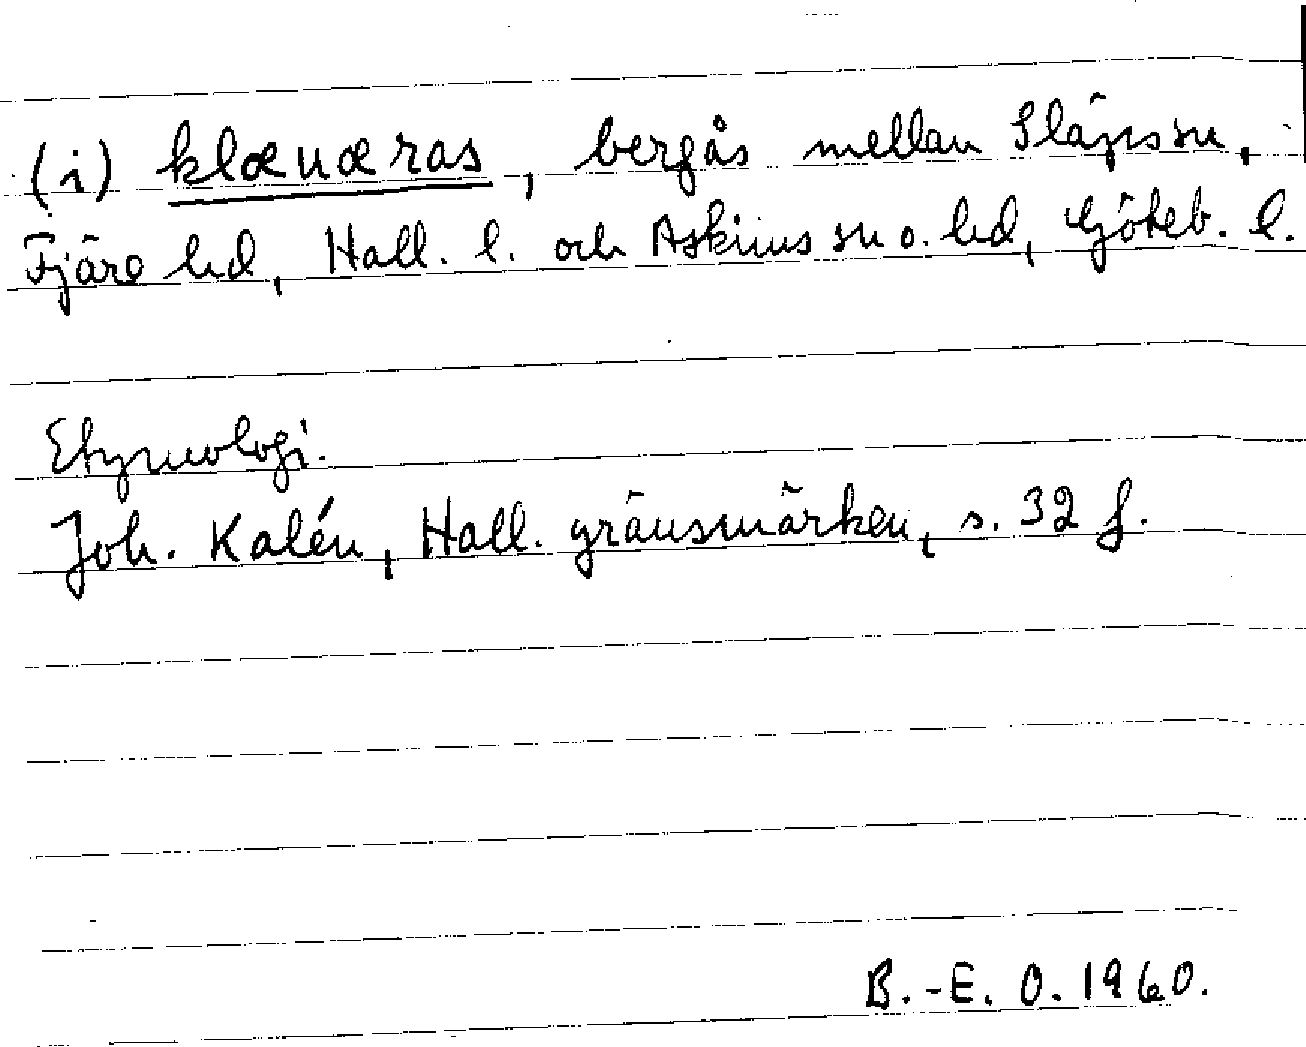 (i) klæuæras, bergås mellan Släps sn,
Fjäre hd, Hall. l. och Askims sn o. hd, Göteb. l.
Etymologi.
Joh. Kalén, Hall. gränsmärken, s. 32 f.
B.-E. O. 1960.